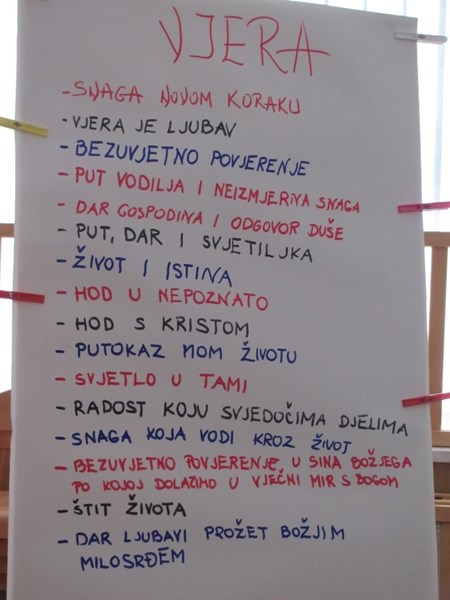 VJERA
- SNAGA NOVOM KORAKU
- VJERA JE LJUBAV
- BEZUVJETNO POVJERENJE
- PUT VODILJA I NEIZMJERIVA SNAGA
- DAR GOSPODINA I ODGOVOR DUŠE
- PUT, DAR I SVJETILJKA
- ŽIVOT I ISTINA
- HOD U NEPOZNATO
- HOD S KRISTOM
- PUTOKAZ MOM ŽIVOTU
- SVJETLO U TAMI
- RADOST KOJU SVJEDOČIMA DJELIMA
- SNAGA KOJA VODI KROZ ŽIVOT
- BEZUVJETNO POVJERENJE U SINA BOŽJEGA
PO KOJOJ DOLAZIMO U VJEČNI MIR S BOGOM
- ŠTIT ŽIVOTA
- DAR LJUBAVI PROŽET BOŽJIM
MILOSRĐEM